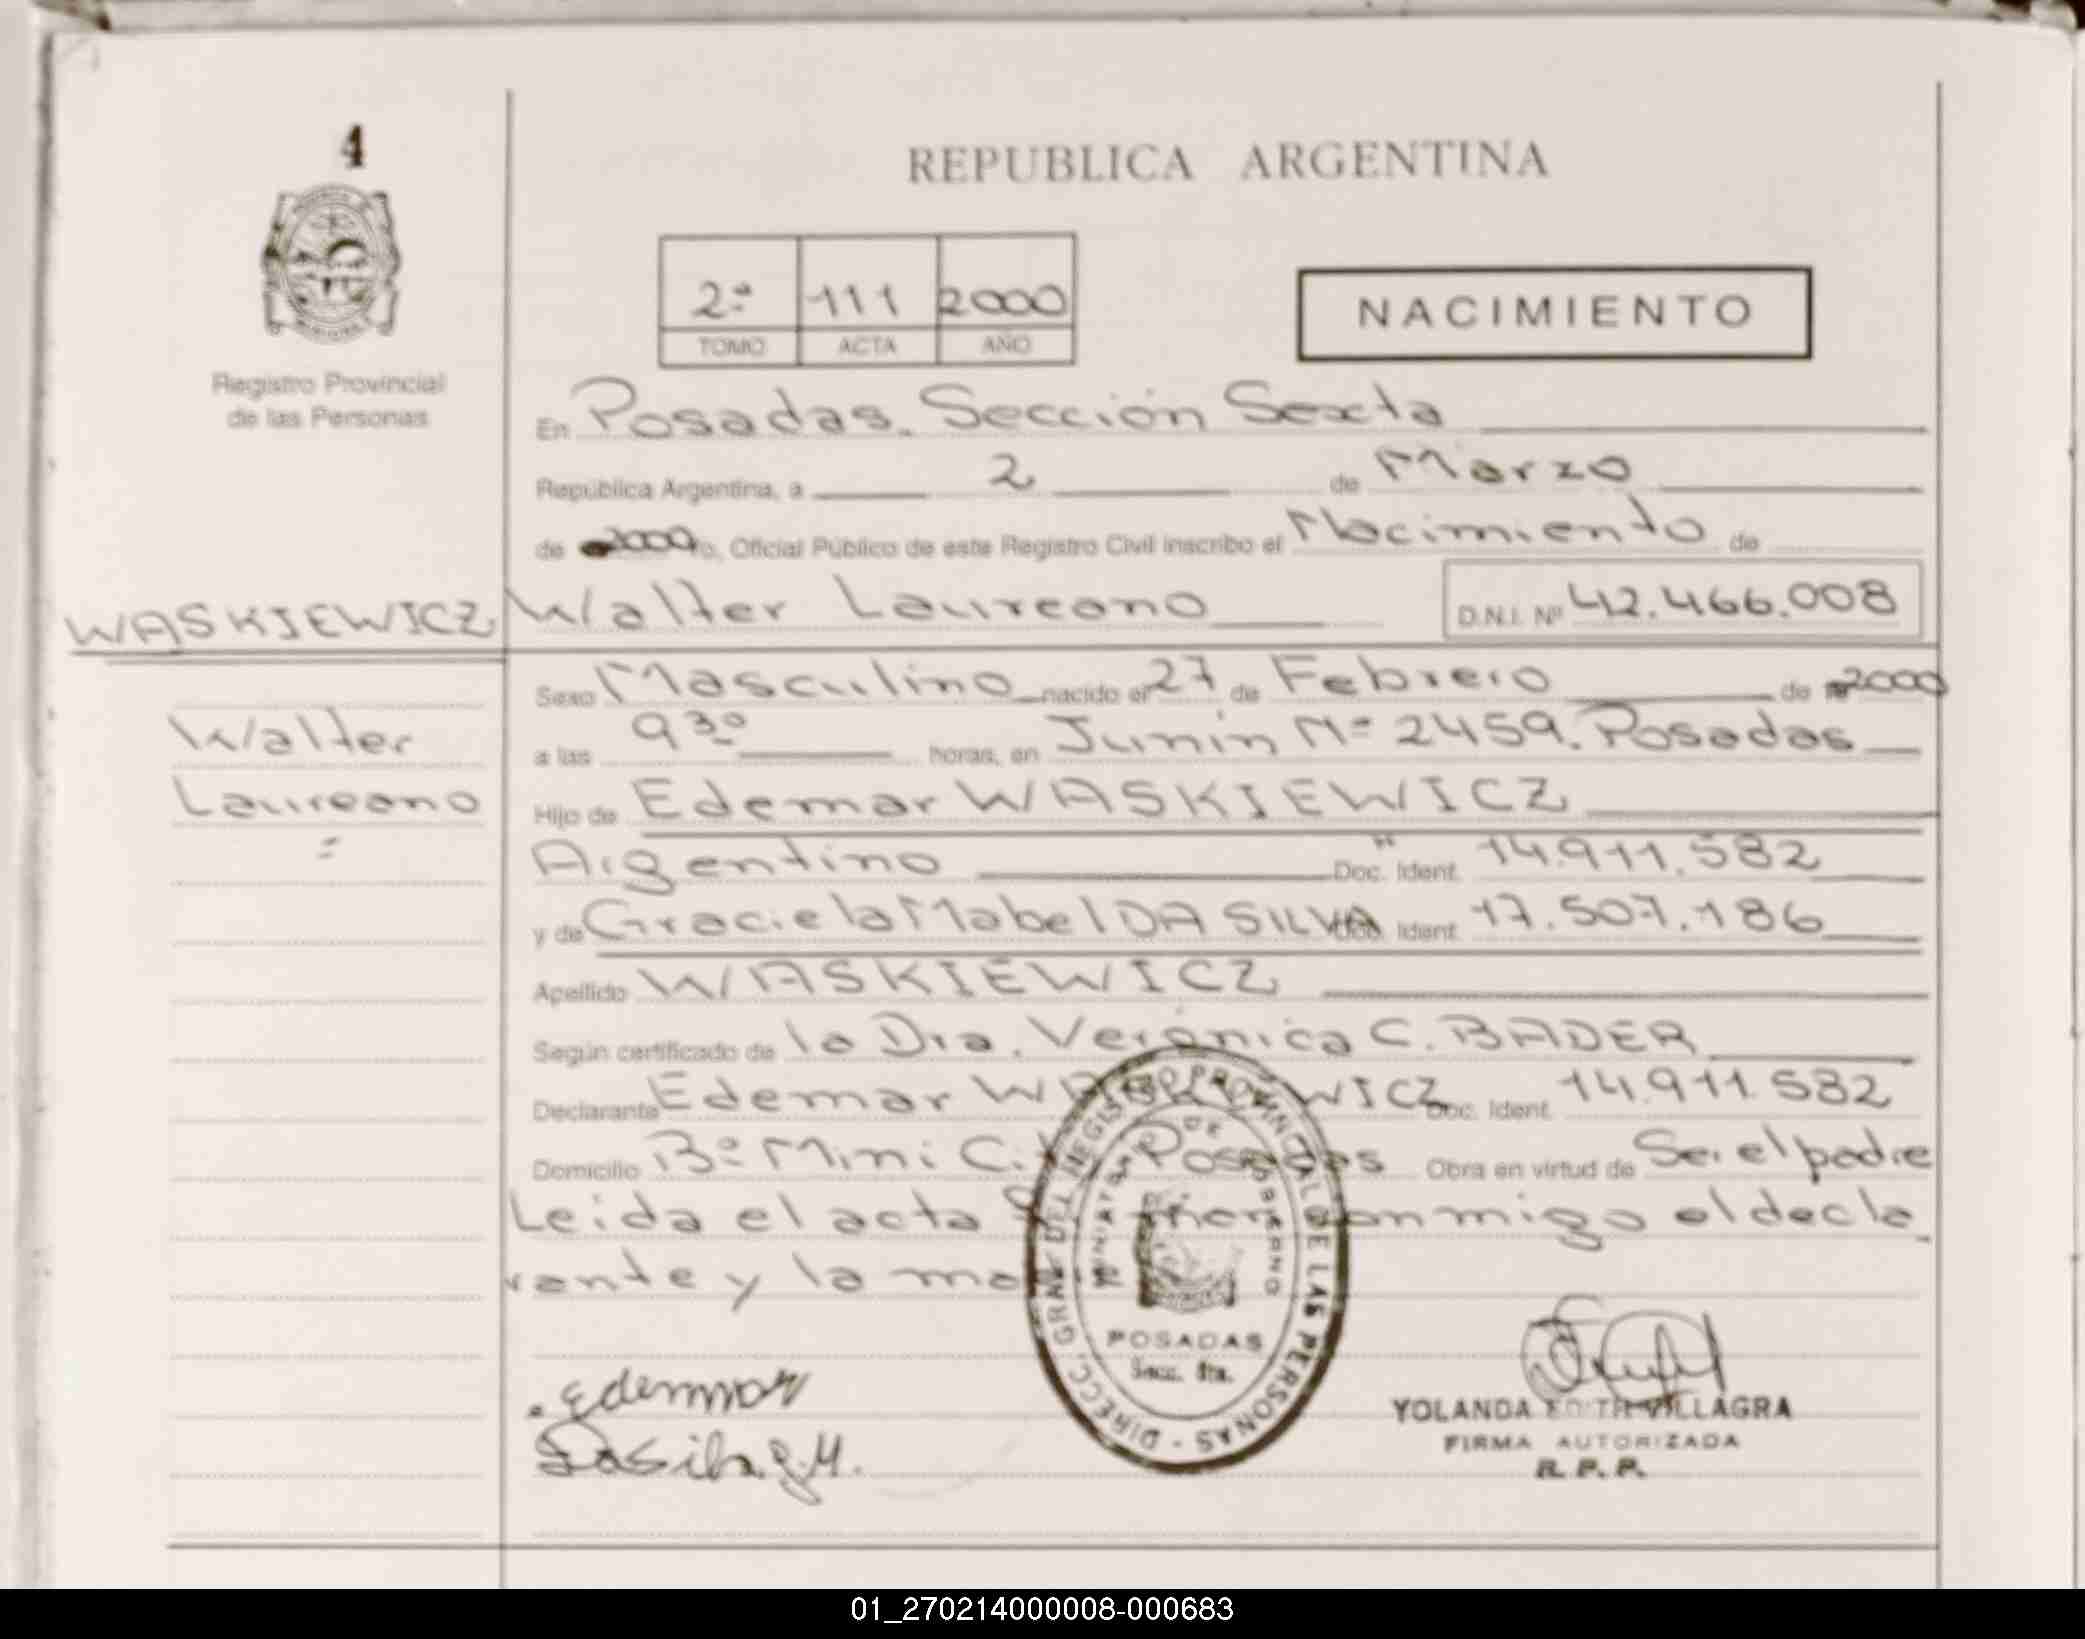 4
REPUBLICA ARGENTINA
2ª 111 2000
TOMO ACTA AÑO
NACIMIENTO
Registro Provincial
de las Personas
En Posadas. Sección Sexta
República Argentina, a 2 de Marzo
de 2000, Oficial Público de este Registro Civil inscribo el Nacimiento de
WASKIEWICZ Walter Laureano D.N.I. Nº 42.466.008
Walter
Laureano
Sexo Masculino nacido el 27 de Febrero de 2000
a las 9 30 horas, en Junín Nº 2459. Posadas
Hijo de Edemar WASKIEWICZ
Argentino Doc. Ident. 14.911.582
y de Graciela Mabel DA SILVA Doc. Ident. 17.507.186
Apellido WASKIEWICZ
Según certificado de la Dra. Verónica C. BADER
Declarante Edemar WASKIEWICZ Doc. Ident. 14.911.582
Domicilio Bº Mini C. Posadas Obra en virtud de Ser el padre
Leida el acta conmigo el decla
rante y la
DIRECC. GRAL DEL REGISTRO PROVINCIAL DE LAS PERSONAS
MINISTERIO DE GOBIERNO
POSADAS
Secc. 6ta.
Edemar
Dasilva g.M.
YOLANDA EDITH VILLAGRA
FIRMA AUTORIZADA
R. P. P.
01_270214000008-000683